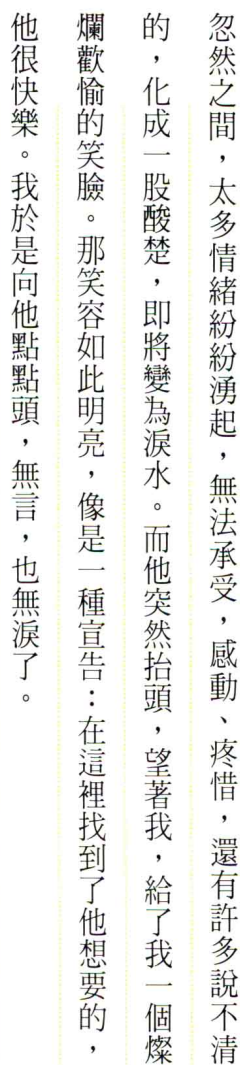 忽然之間，太多情緒紛紛湧起，無法承受，感動、疼惜，還有許多說不清
的，化成一股酸楚，即將變為淚水。而他突然抬頭，望著我，給了我一個燦
爛歡愉的笑臉。那笑容如此明亮，像是一種宣告：在這裡找到了他想要的，
他很快樂。我於是向他點點頭，無言，也無淚了。